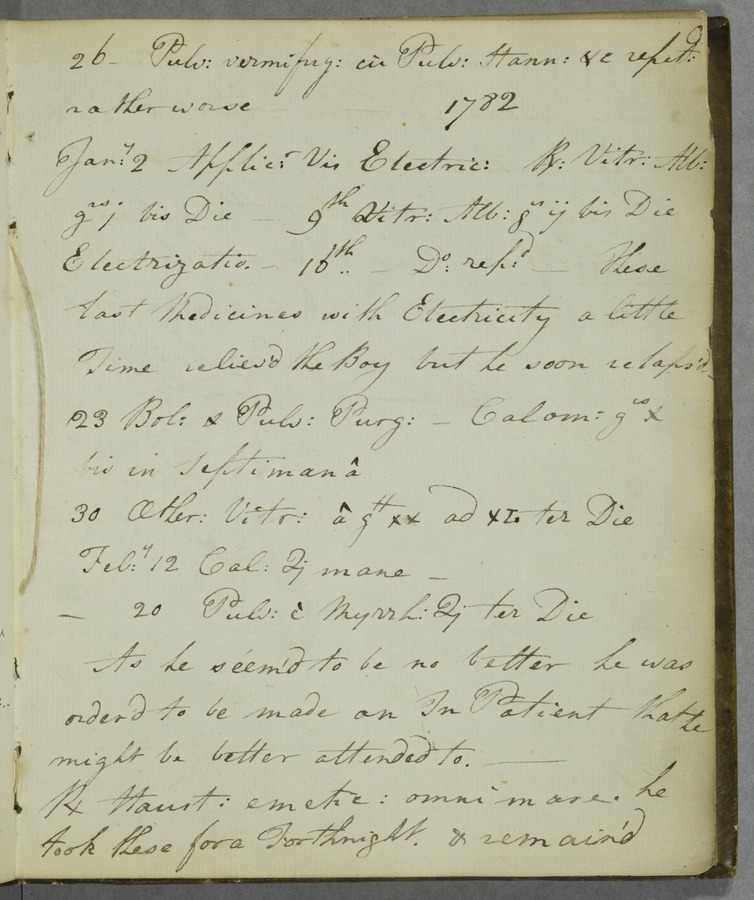 26 - Pulv: vermifug: cū Pulv: Stann: &c repetd:
rather worse 1782
Jany: 2 Applicr Vis Electric: ℞: Vitr: Alb:
grs j bis Die — 9th Vitr: Alb: gr ij bis Die
Electrizatio. — 16th.. — Do: repd: — These
last Medicines with Electricity a little
Time reliev'd the Boy but he soon relaps'd
23 Bol: e Pulv: Purg: — Calom: grs x
bis in Septimanâ
30 Æther: Vitr: â gtt xx ad xL ter Die
Feby: 12 Cal: ℈j mane —
— 20 Pulv: è Myrrh: ℈j ter Die
As he seem'd to be no better he was
order'd to be made an In Patient that he
might be better attended to. —
℞ Haust: emetic: omni mane. he
took these for a Forthnight. & remain'd